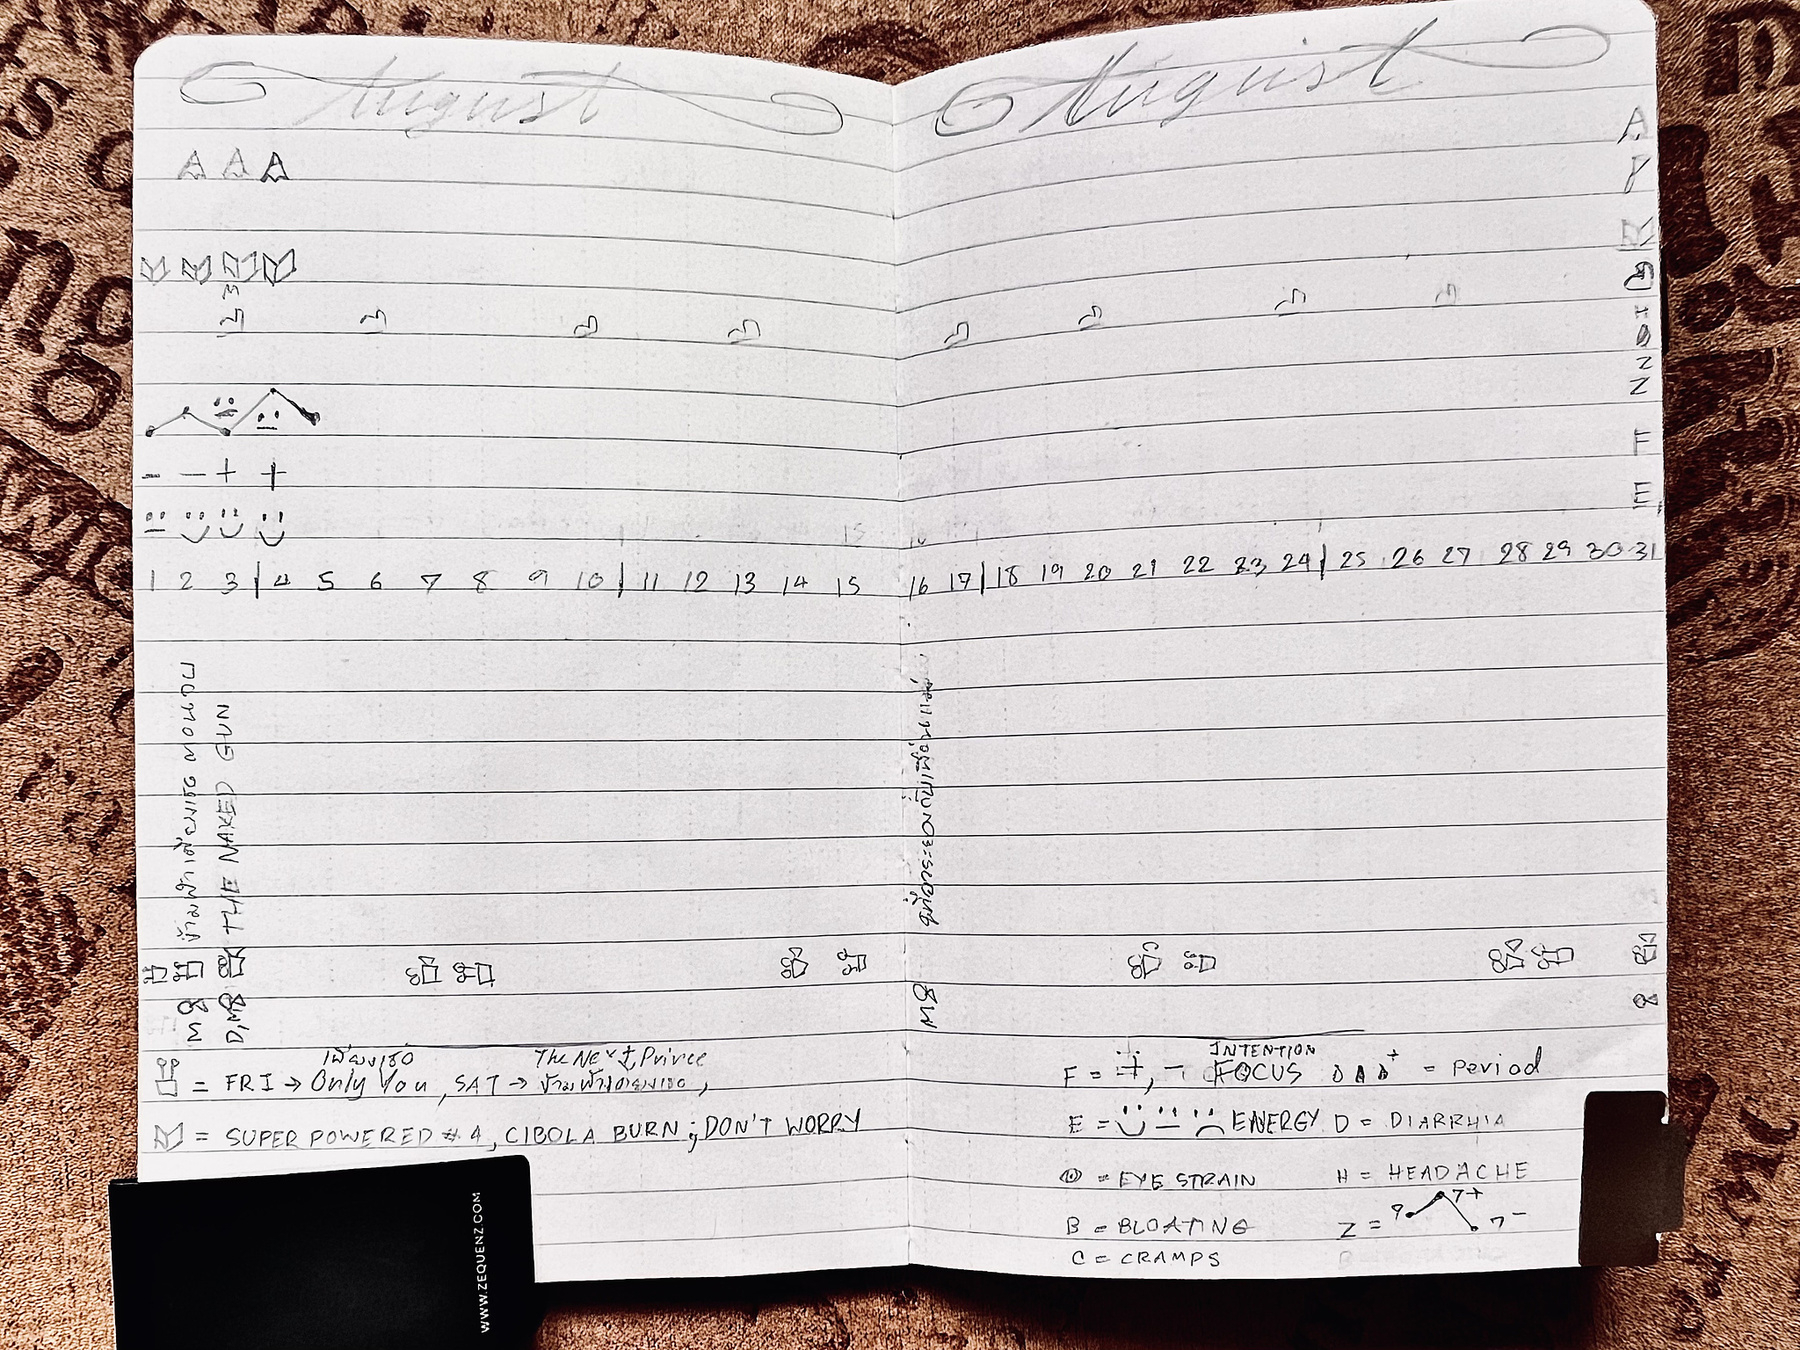 August
August
A A A
A
Y
H
Z
Z
F
E
- - + +
1 2 3 | 4 5 6 7 8 9 10 | 11 12 13 14 15
16 17 | 18 19 20 21 22 23 24 | 25 26 27 28 29 30 31
THE NAKED GUN
= FRI → Only You, SAT →
เพียงเธอ
The Next Prince
= SUPER POWERED #4, CIBOLA BURN; DON'T WORRY
INTENTION
F = +, - FOCUS = Period
E = ENERGY D = DIARRHIA
= EYE STRAIN H = HEADACHE
B = BLOATING Z = 7+ 7-
C = CRAMPS
WWW.ZEQUENZ.COM